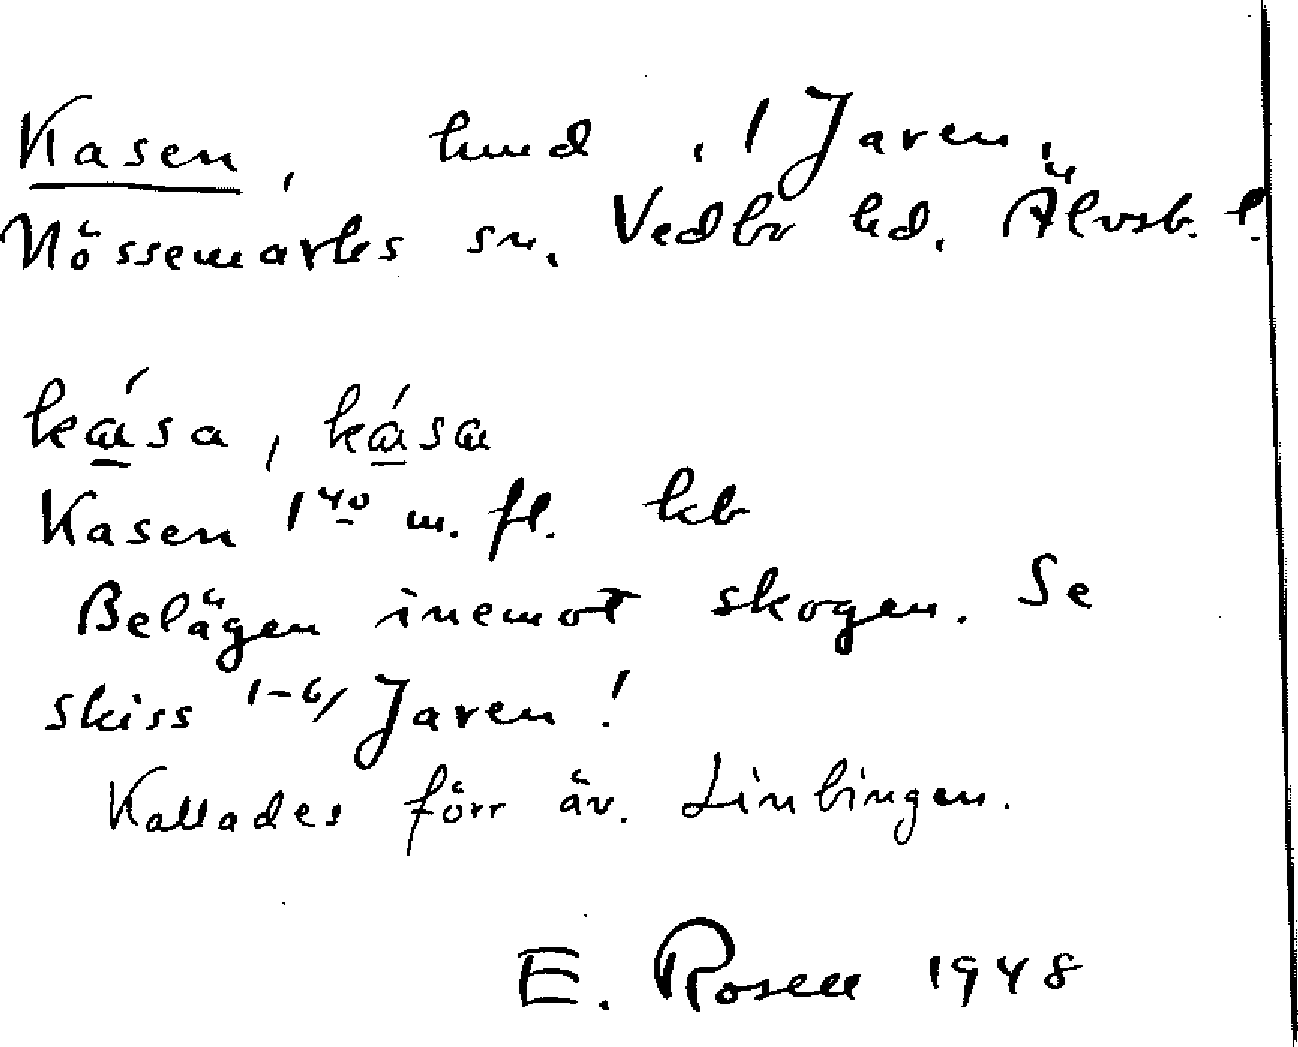 Kasen, hmd, 1 Jaren,
Nössemarks sn. Vedbo hd. Älvsb. l.
kása, kása
Kasen 1⁴⁰ m. fl. kb
Belägen inemot skogen. Se
skiss 1-6/ Jaren!
Kallades förr äv. Linbingen.
E. Rosell 1948